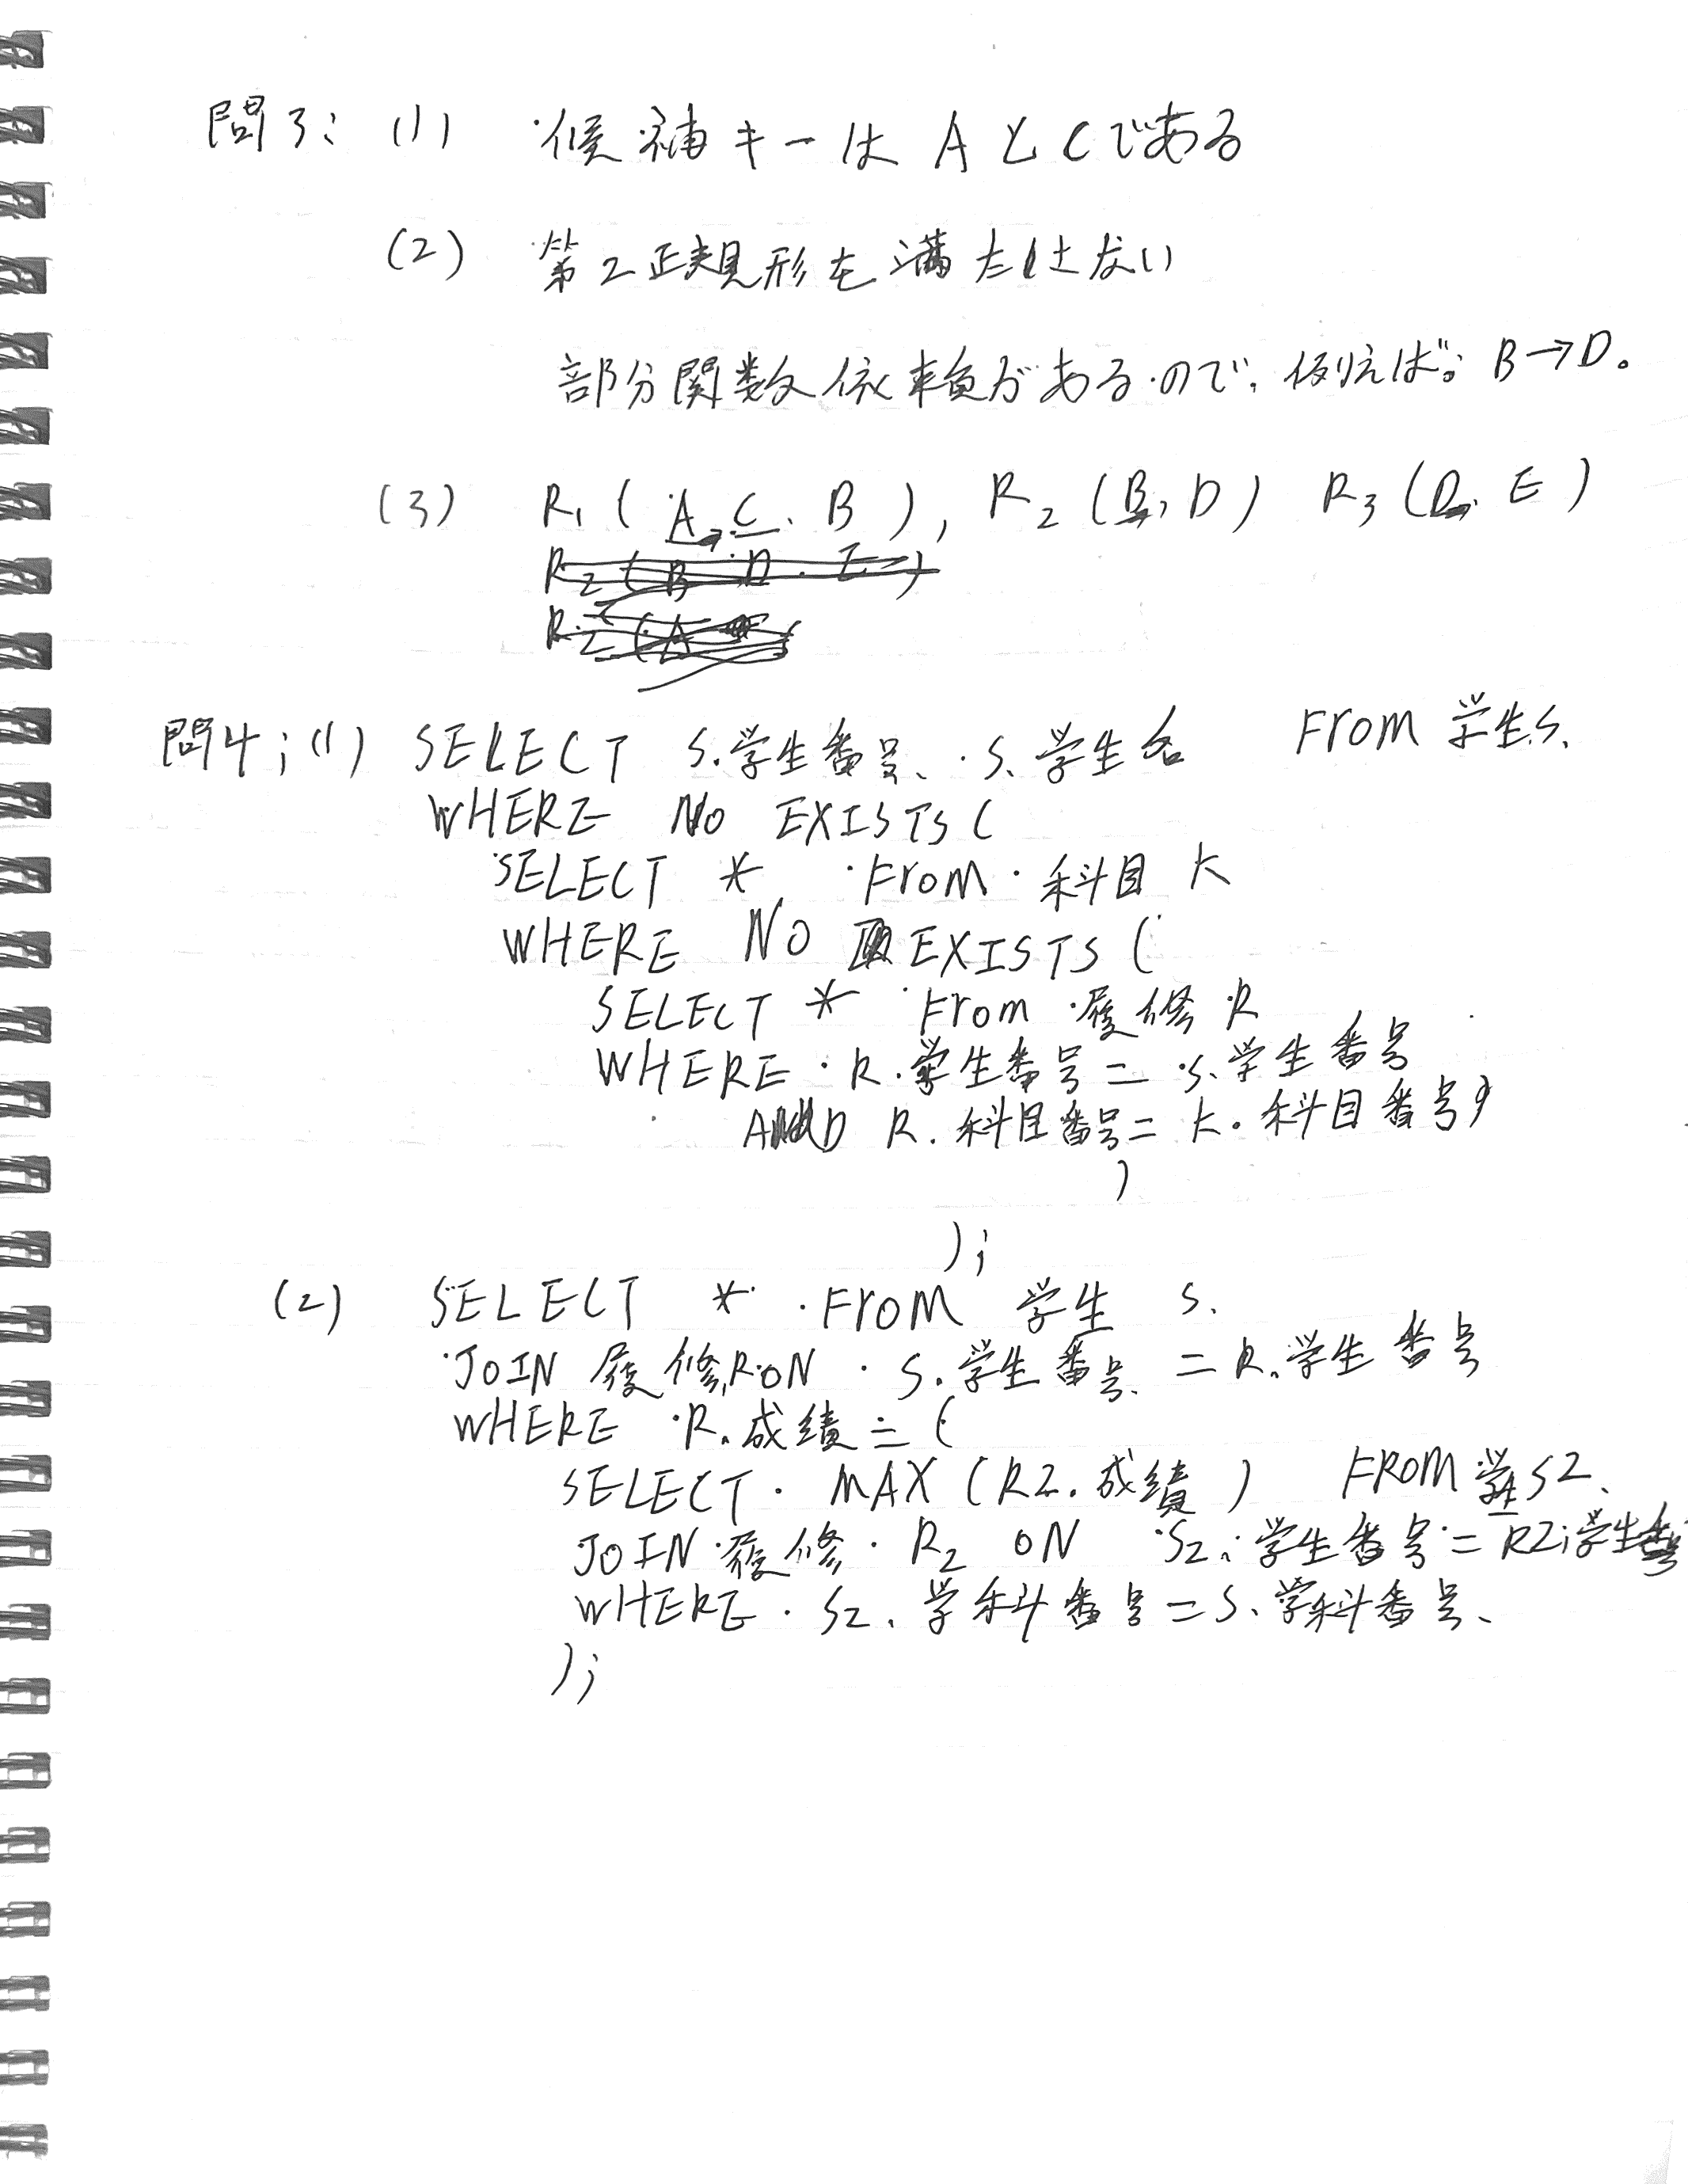 問3: (1) 候補キーは AとCである
(2) 第2正規形を満たしはない
部分関数依頼があるので, 例えば: B→D。
(3) R1 ( A, C, B ), R2 (B, D) R3 (D, E)
問4; (1) SELECT S.学生番号、S.学生名 From 学生S.
WHERE No EXISTS (
SELECT * From 科目 K
WHERE NO EXISTS (
SELECT * From 履修 R
WHERE R.学生番号 = S.学生番号
AND R.科目番号 = K.科目番号
)
);
(2) SELECT * From 学生 S.
JOIN 履修 R ON S.学生番号 = R.学生番号
WHERE R.成績 = (
SELECT MAX (R2.成績) FROM 学生 S2.
JOIN 履修 R2 ON S2.学生番号 = R2.学生番号
WHERE S2.学科番号 = S.学科番号.
);